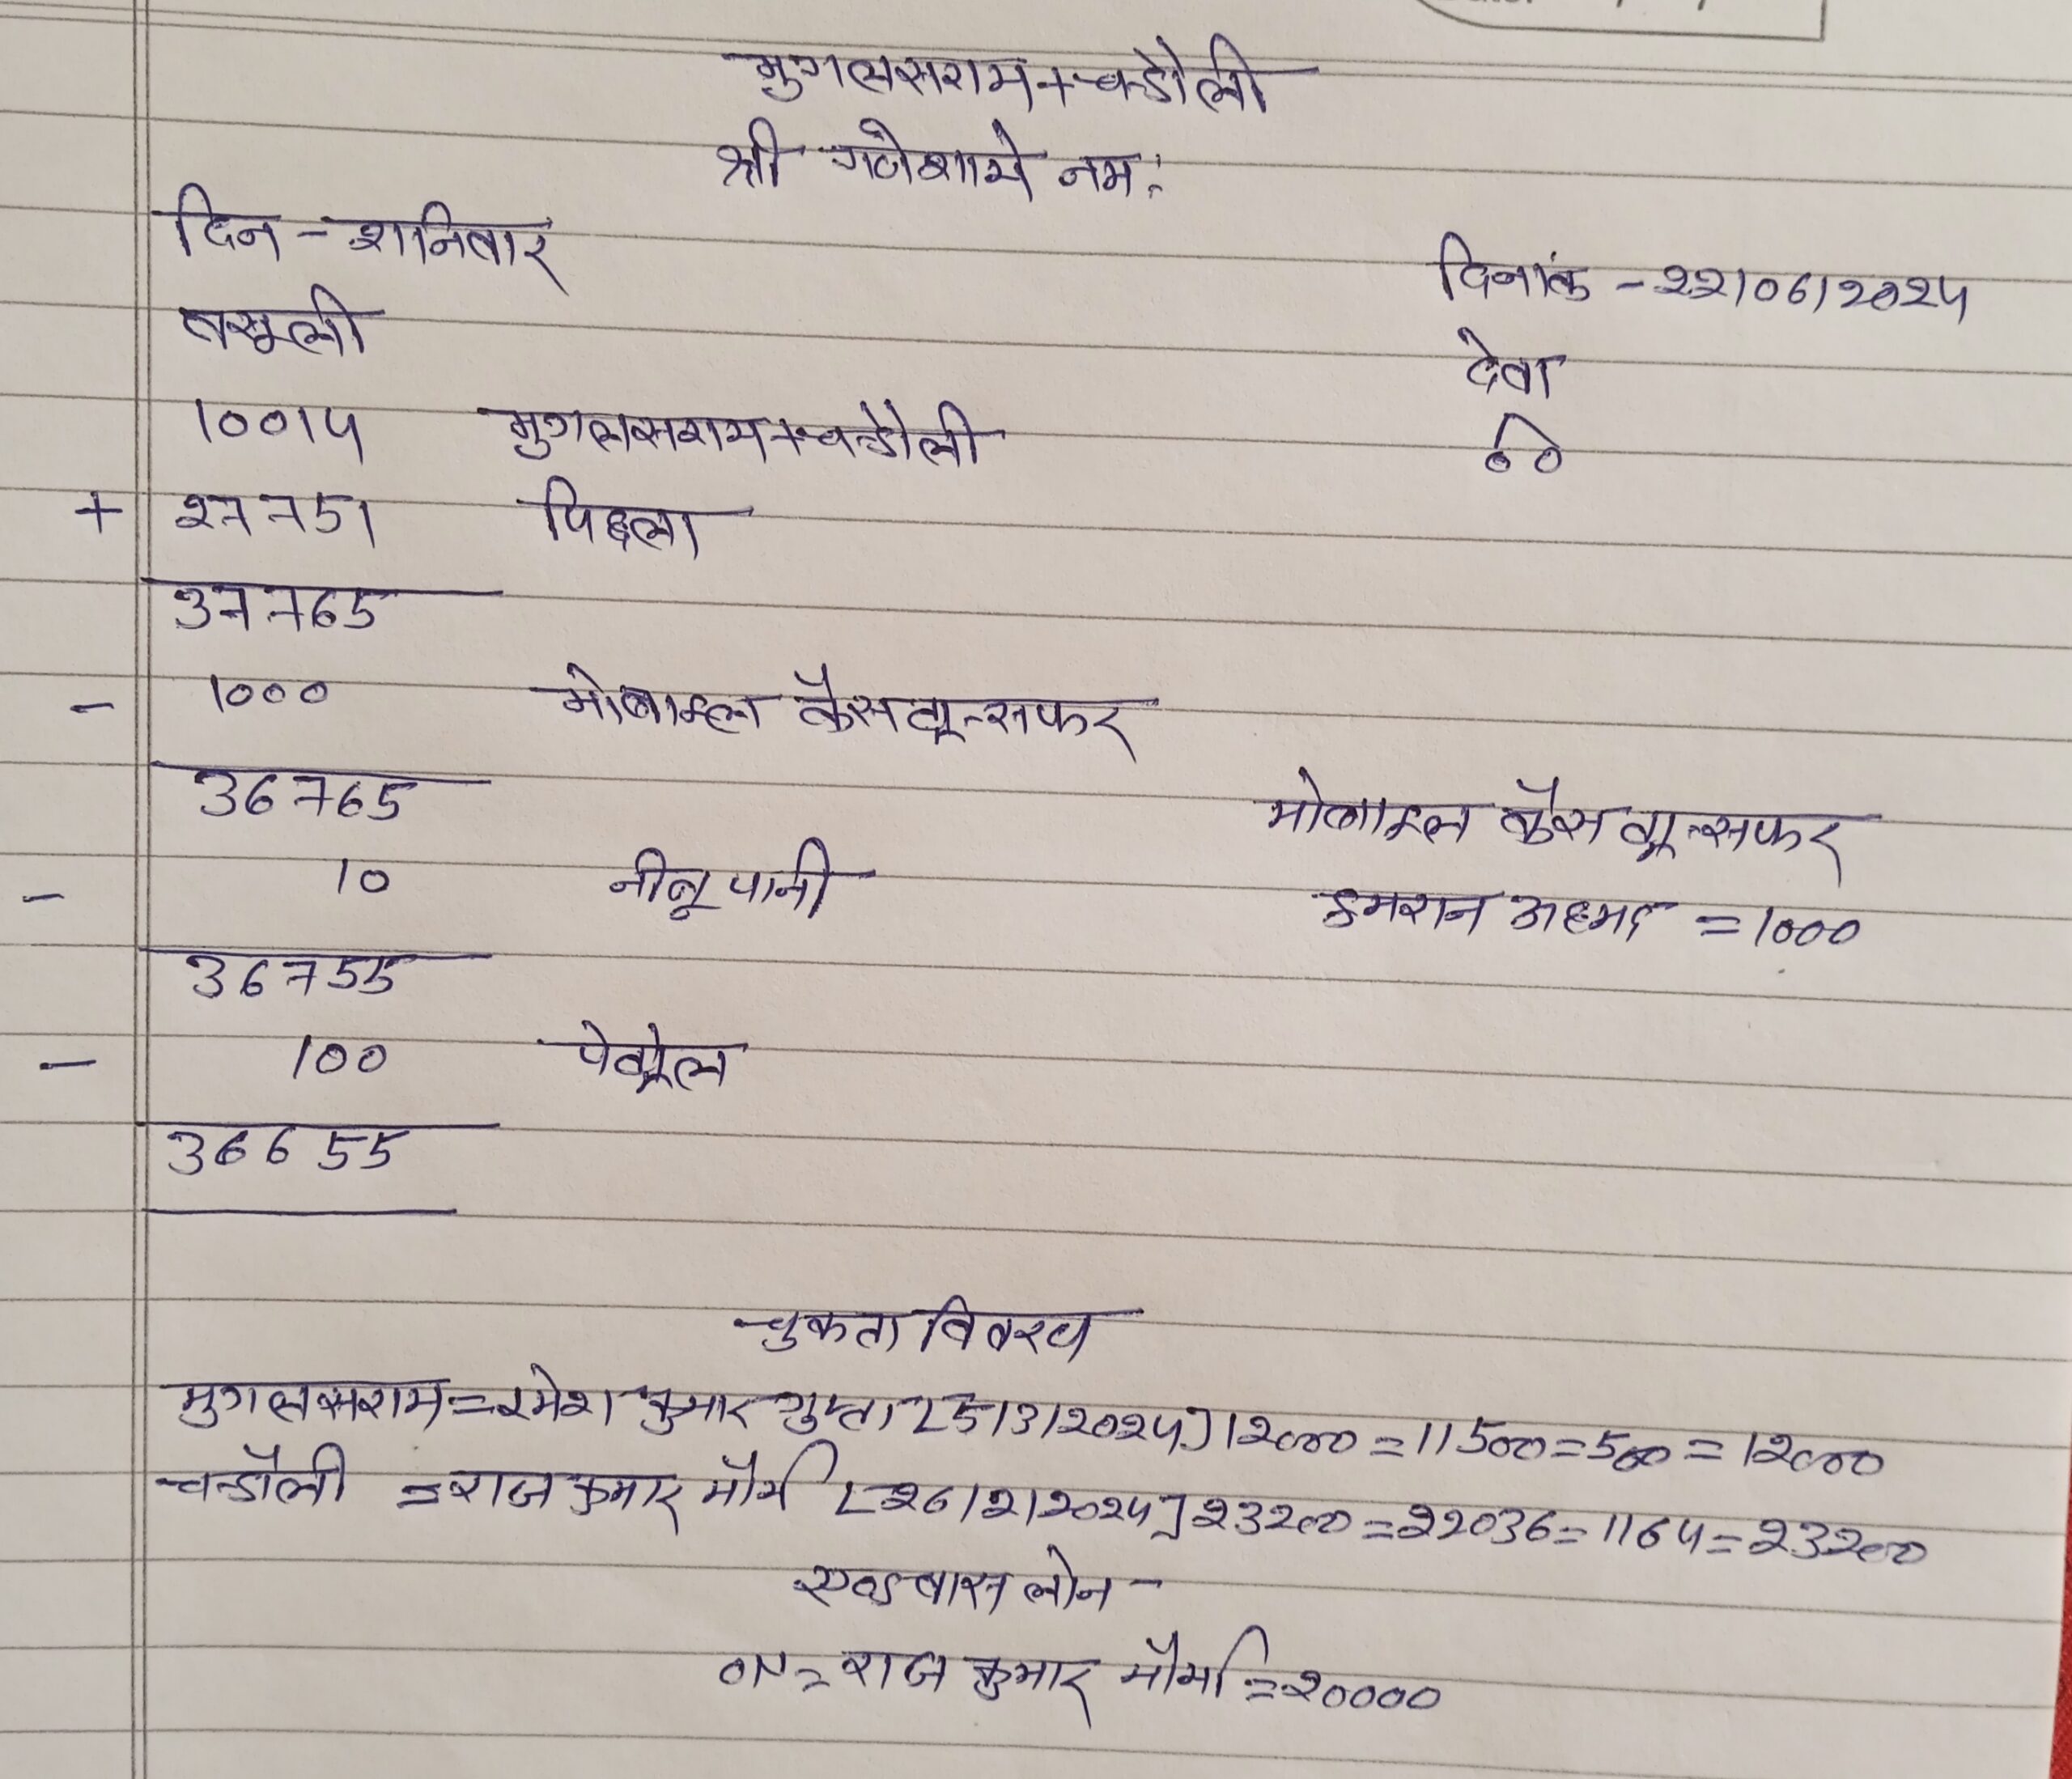 मुगलसराय+चन्डौली
श्री गणेशाये नमः
दिन - शनिवार
दिनांक - 22/06/2024
वसूली
देवा
10014 मुगलसराय+चन्डौली
00
+ 27751 पिछला
37765
- 1000 मोबाइल कैस ट्रान्सफर
36765
मोबाइल कैस ट्रान्सफर
- 10 नीबू पानी
इमरान अहमद = 1000
36755
- 100 पेट्रोल
36655
चुकता विवरण
मुगलसराय = रमेश कुमार गुप्ता [5/3/2024] 12000 = 11500 = 500 = 12000
चन्डौली = राज कुमार मौर्य [26/2/2024] 23200 = 22036 = 1164 = 23200
एडवांस लोन -
ON = राज कुमार मौर्या = 20000